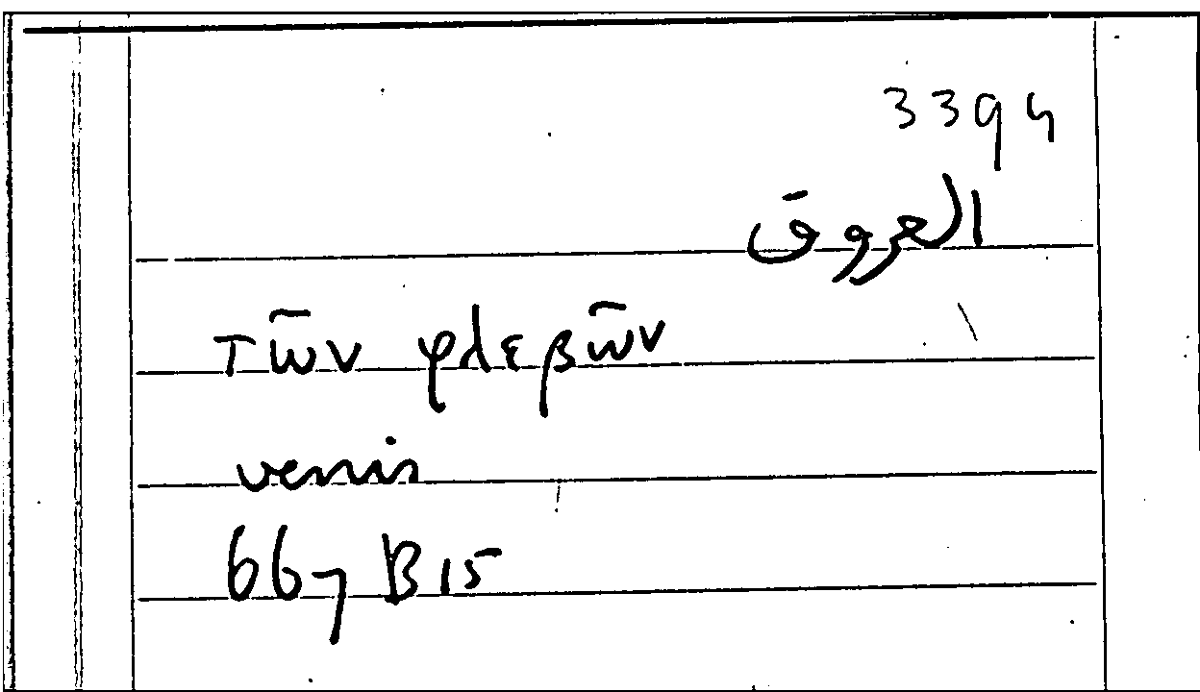 3394
العروق
τῶν φλεβῶν
venis
667 B 15